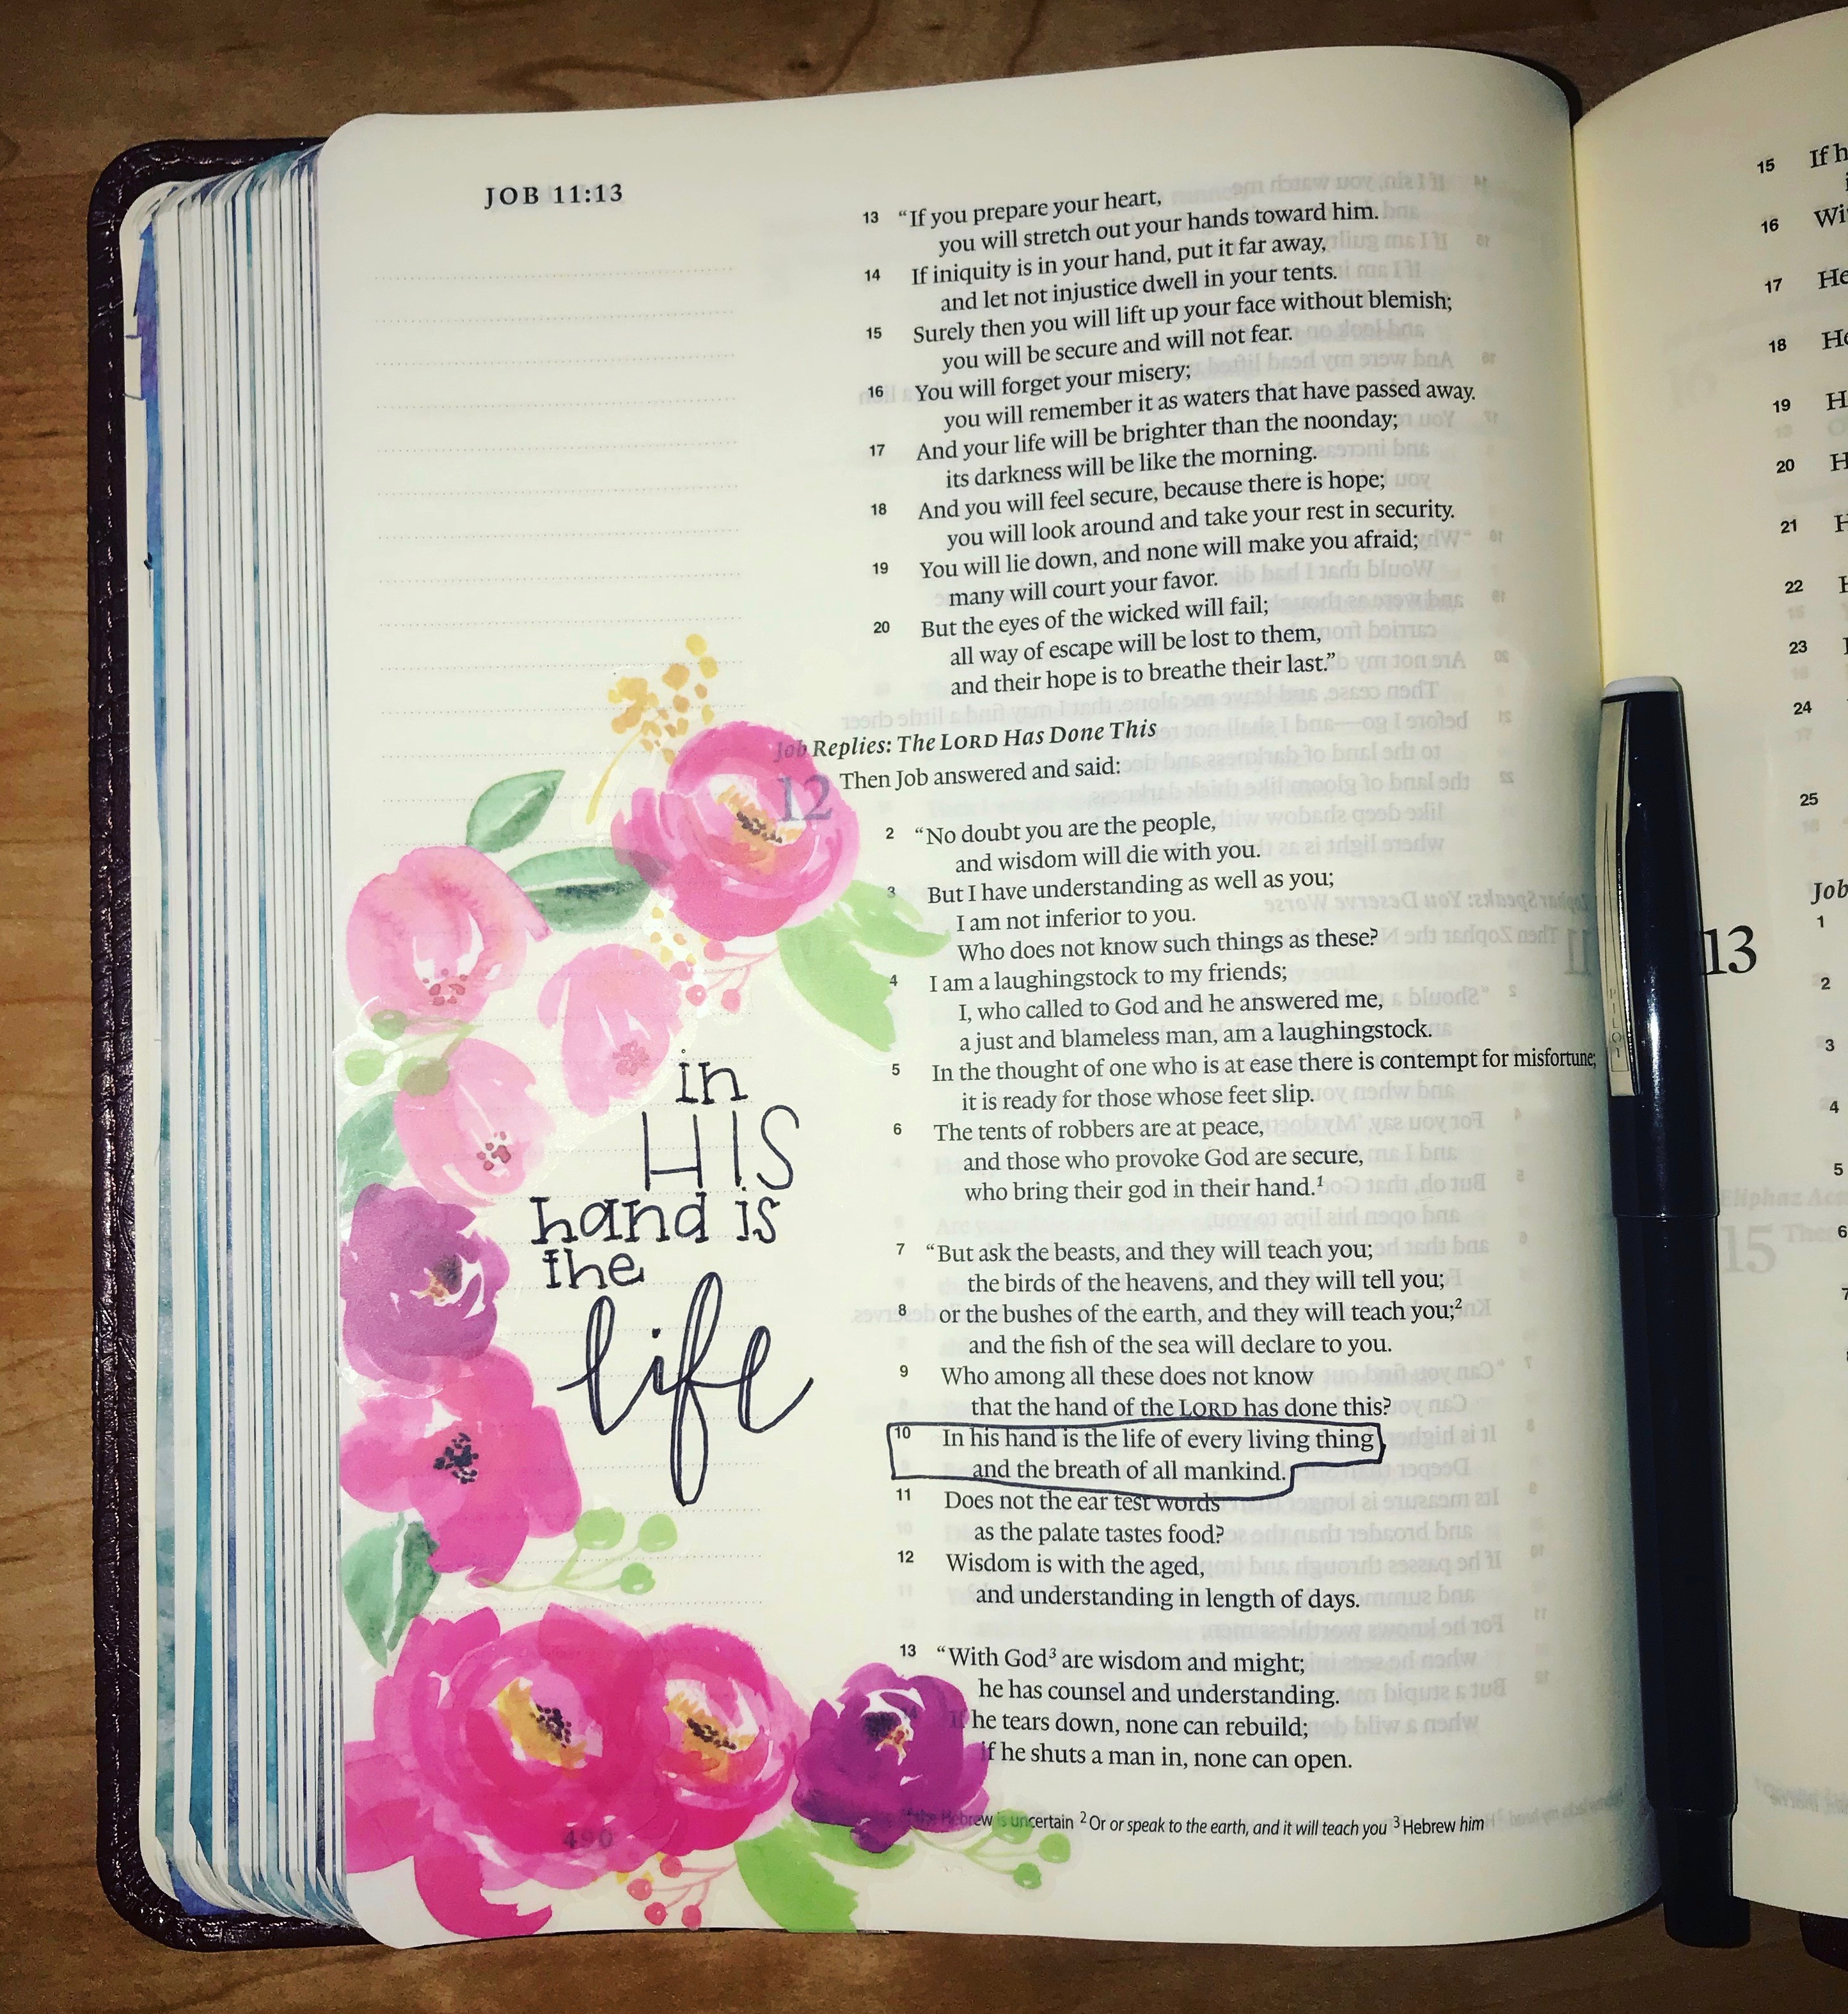 JOB 11:13
13 “If you prepare your heart,
you will stretch out your hands toward him.
14 If iniquity is in your hand, put it far away,
and let not injustice dwell in your tents.
15 Surely then you will lift up your face without blemish;
you will be secure and will not fear.
16 You will forget your misery;
you will remember it as waters that have passed away.
17 And your life will be brighter than the noonday;
its darkness will be like the morning.
18 And you will feel secure, because there is hope;
you will look around and take your rest in security.
19 You will lie down, and none will make you afraid;
many will court your favor.
20 But the eyes of the wicked will fail;
all way of escape will be lost to them,
and their hope is to breathe their last.”
Job Replies: The LORD Has Done This
12 Then Job answered and said:
2 “No doubt you are the people,
and wisdom will die with you.
3 But I have understanding as well as you;
I am not inferior to you.
Who does not know such things as these?
4 I am a laughingstock to my friends;
I, who called to God and he answered me,
a just and blameless man, am a laughingstock.
5 In the thought of one who is at ease there is contempt for misfortune;
it is ready for those whose feet slip.
6 The tents of robbers are at peace,
and those who provoke God are secure,
who bring their god in their hand.¹
7 “But ask the beasts, and they will teach you;
the birds of the heavens, and they will tell you;
8 or the bushes of the earth, and they will teach you;²
and the fish of the sea will declare to you.
9 Who among all these does not know
that the hand of the LORD has done this?
10 In his hand is the life of every living thing
and the breath of all mankind.
11 Does not the ear test words
as the palate tastes food?
12 Wisdom is with the aged,
and understanding in length of days.
13 “With God³ are wisdom and might;
he has counsel and understanding.
If he tears down, none can rebuild;
if he shuts a man in, none can open.
Hebrew is uncertain ² Or or speak to the earth, and it will teach you ³ Hebrew him
490
in
HIS
hand is
the
life
PILOT
15 If h
16 Wi
17 He
18 He
19 H
20 H
21
22
23
24
25
Job
13 1
2
3
4
5
6
7